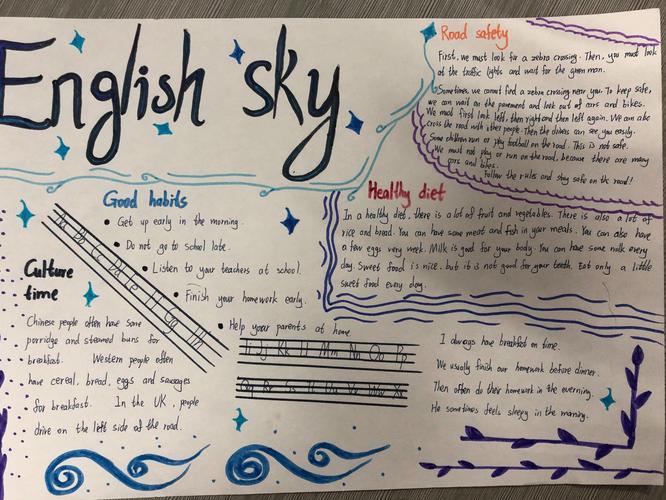 English sky
Road safety
First, we must look for a zebra crossing. Then, you must look
at the traffic lights and wait for the green man.
Sometimes, we cannot find a zebra crossing near you. To keep safe,
we can wait on the pavement and look out of cars and bikes.
We must first look left, then right and then left again. We can also
cross the road with other people. Then the drivers can see you easily.
Some children run or play football on the road. This is not safe.
We must not play or run on the road, because there are many
cars and bikes.
Follow the rules and stay safe on the road!
Good habits
Get up early in the morning.
Do not go to school late.
Listen to your teachers at school.
Finish your homework early.
Help your parents at home
Healthy diet
In a healthy diet, there is a lot of fruit and vegetables. There is also a lot of
rice and bread. You can have some meat and fish in your meals. You can also have
a few eggs every week. Milk is good for your body. You can have some milk every
day. Sweet food is nice, but it is not good for your teeth. Eat only a little
sweet food every day.
Culture
time
Chinese people often have some
porridge and steamed buns for
breakfast. Western people often
have cereal, bread, eggs and sausages
for breakfast. In the UK, people
drive on the left side of the road.
Aa Bb Cc Dd Ee Ff Gg Hh
Ii Jj Kk Ll Mm Nn Oo Pp
I always have breakfast on time.
We usually finish our homework before dinner.
Then often do their homework in the evening.
He sometimes feels sleepy in the morning.